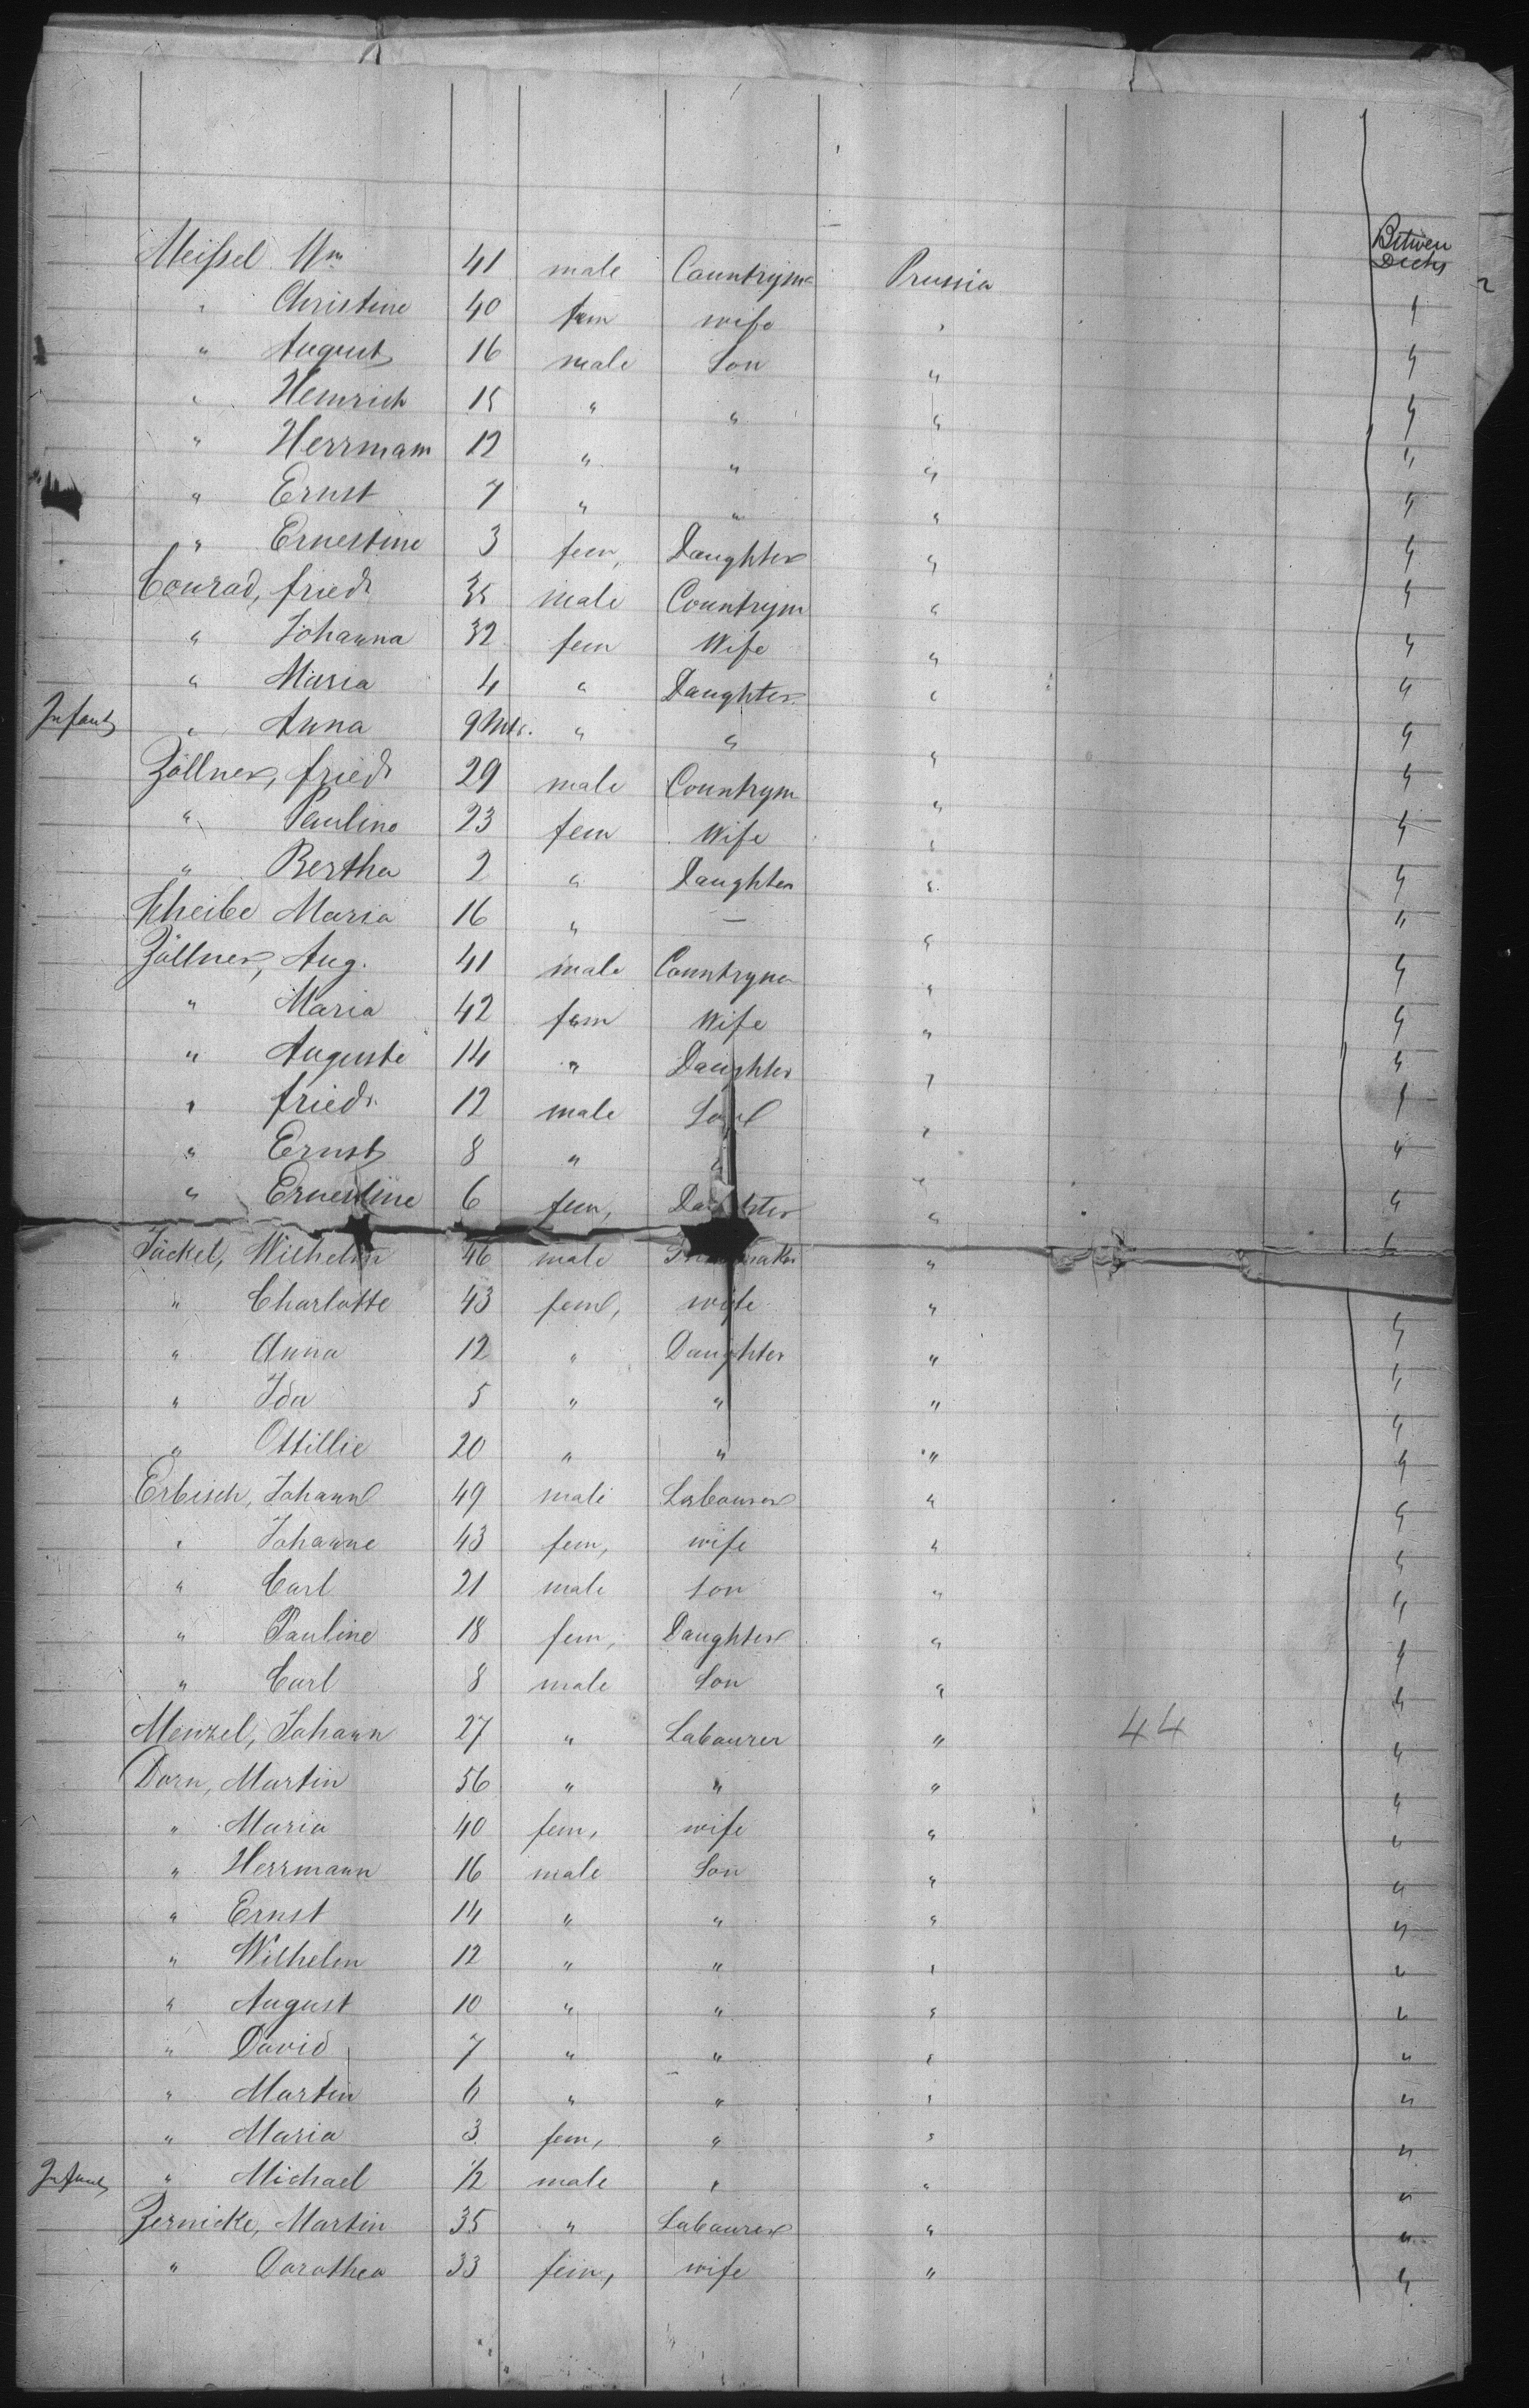 Between Decks
Meissel Wm 41 male Countrym Prussia
" Christine 40 fem wife " "
" August 16 male Son " "
" Heinrich 15 " " " "
" Herrmann 12 " " " "
" Ernst 7 " " " "
" Ernestine 3 fem, Daughter " "
Conrad, friedr 35 male Countrym " "
" Johanna 32 fem Wife " "
" Maria 4 " Daughter " "
Infant " Anna 9 Mts. " " " "
Zöllner, friedr 29 male Countrym " "
" Pauline 23 fem Wife " "
" Bertha 2 " Daughter " "
Scheibe Maria 16 " — " "
Zöllner, Aug. 41 male Countryma " "
" Maria 42 fem Wife " "
" Auguste 14 " Daughter " "
" friedr. 12 male Son " "
" Ernst 8 " " " "
" Ernestine 6 fem, Daughter " "
Jäckel, Wilhelm 46 male " "
" Charlotte 43 fem, wife " "
" Anna 12 " Daughter " "
" Ida 5 " " " "
" Ottillie 20 " " " "
Erbisch, Johann 49 male Labourer " "
" Johanne 43 fem, wife " "
" Carl 21 male Son " "
" Pauline 18 fem, Daughter " "
" Carl 8 male Son " "
Menzel, Johann 27 " Labourer " 44 "
Dorn, Martin 56 " " " "
" Maria 40 fem, wife " "
" Herrmann 16 male Son " "
" Ernst 14 " " " "
" Wilhelm 12 " " " "
" August 10 " " " "
" David 7 " " " "
" Martin 6 " " " "
" Maria 3 fem, " " "
Infant " Michael 1/2 male " " "
Zernicke, Martin 35 " Labourer " "
" Dorothea 33 fem, wife " "